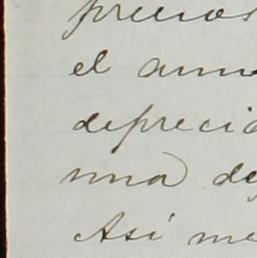 precios
el aume
deprecia
una de
Así me